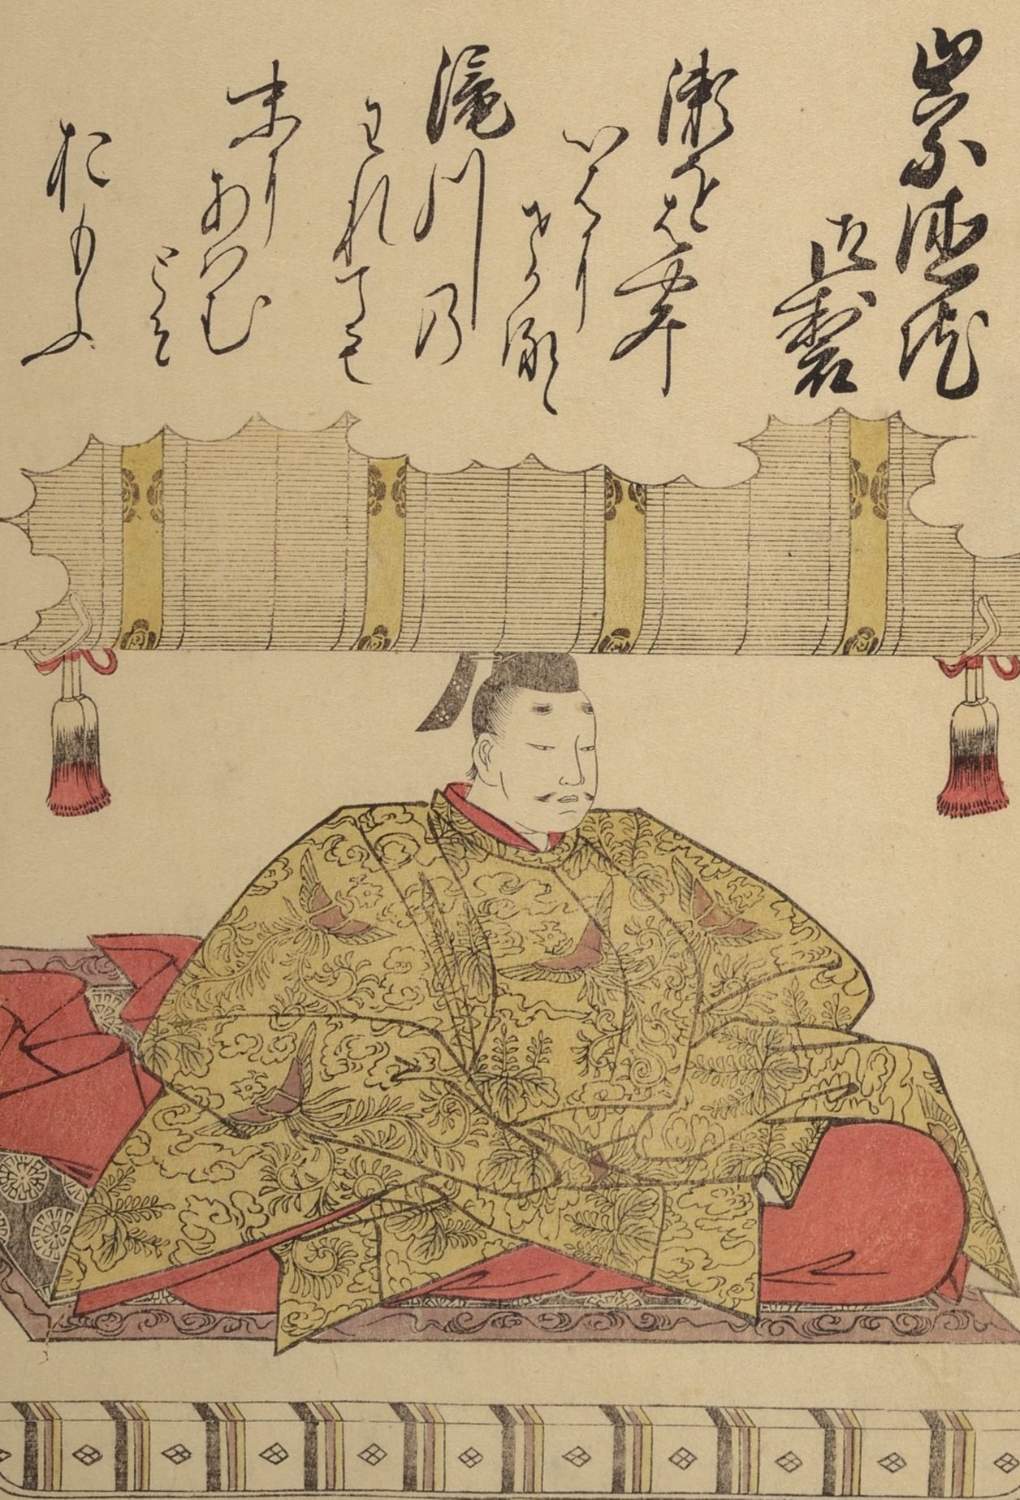 崇徳院
御製
瀬をはやみ
いはに
せかるゝ
滝川乃
われても
末に
あハむ
とそ
おもふ